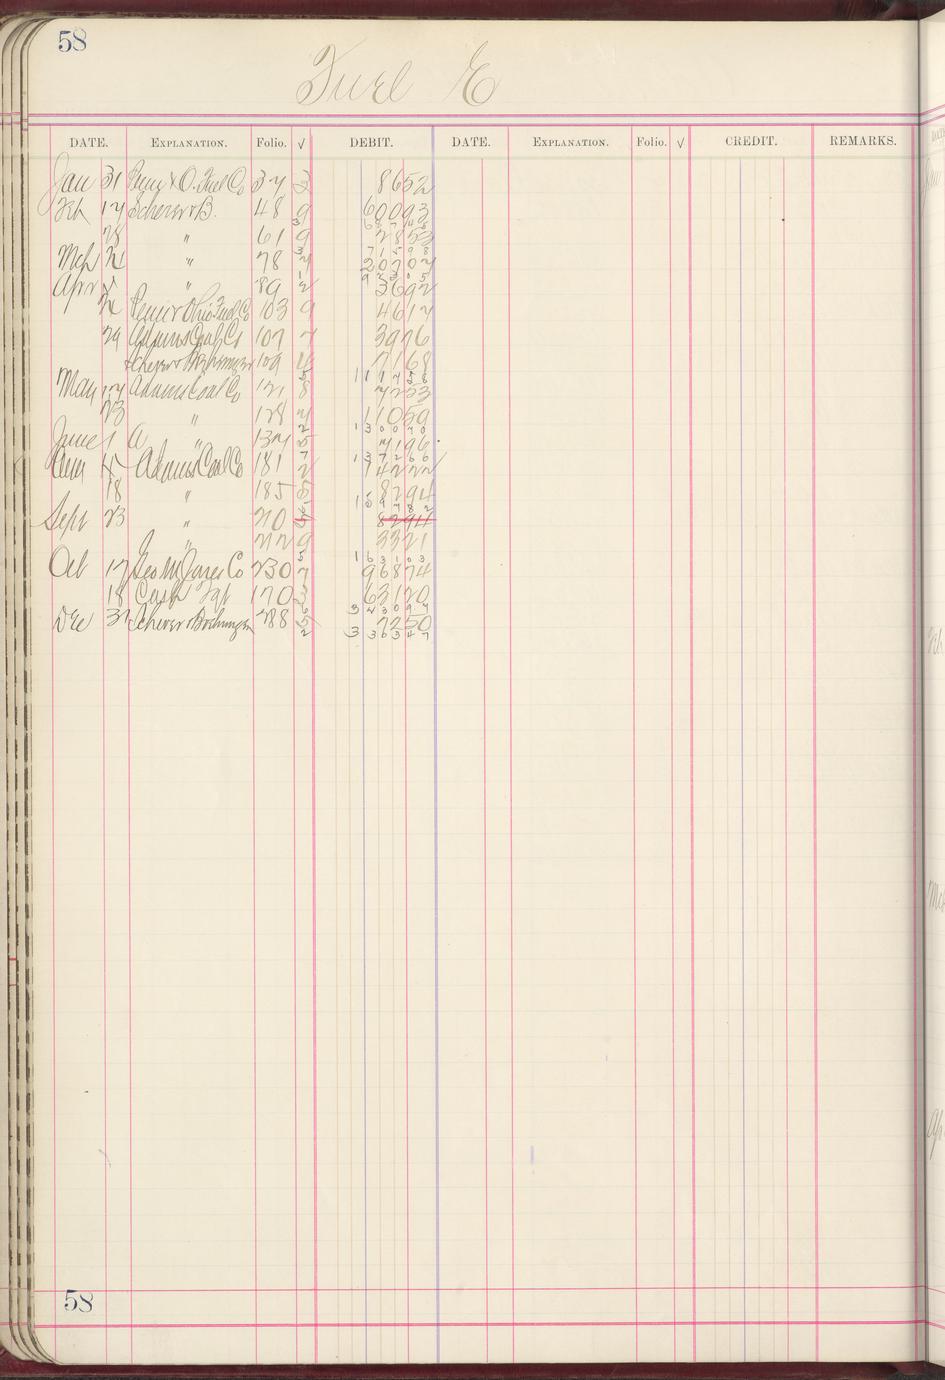 58
Fuel E
DATE. EXPLANATION. Folio. √ DEBIT. DATE. EXPLANATION. Folio. √ CREDIT. REMARKS.
Jan 31 Penn & O. Fuel Co 37 2 8652
Feb 17 Scherer & B. 48 9 60093
28 " 61 9 2853
71598
Mch " 78 20707
Apr " 89 2 3692
Penn & Ohio Fuel Co 103 9 4617
29 Adams Coal Co 107 7 3976
Scherer & Bohringer 109 7168
May 17 Adams Coal Co 121 8 7253
23 " 128 11059
130070
June 1 " 137 5 7196
137266
Adams Coal Co 181 2 14222
18 " 185 5 8294
159782
Sept 23 " 210 8294
" 212 9 3321
163103
Oct 17 Geo M Jones Co 230 7 96874
18 Cash 170 63120
Dec 31 Scherer & Bohringer 288 5 7250
58